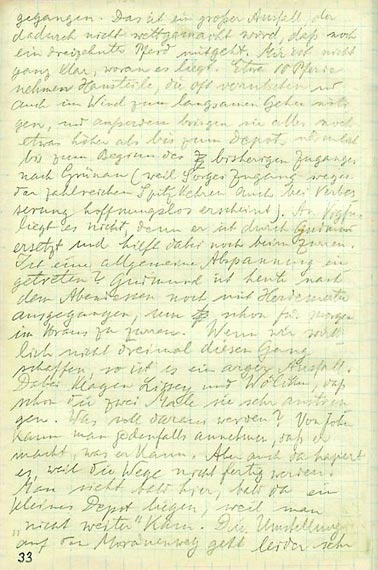 gegangen. Das ist ein großer Ausfall, der
dadurch nicht wettgemacht wird, daß noch
ein dreizehntes Pferd mitgeht. Mir ist nicht
ganz klar, woran es liegt. Etwa 10 Pferde
nehmen Heuteile, die oft verrutschen und
auch im Wind zum langsamen Gehen nöti-
gen, und außerdem bringen sie alles noch
etwas höher als bis zum Depot, nämlich
bis zum Beginn des bisherigen Zuganges
nach Grünau (weil Sorges Zugang wegen
der zahlreichen Spitzkehren auch bei Verbes-
serung hoffnungslos erscheint). An Vigfus
liegt es nicht, denn er ist durch Gudmund
ersetzt und hilft dabei noch beim Zurren.
Ist eine allgemeine Abspannung ein-
getreten? Gudmund ist heute nach
dem Abendessen noch mit
ausgegangen, um schon für morgen
im Voraus zu zurren. Wenn wir wirk-
lich nicht dreimal diesen Gang
schaffen, so ist es ein arger Ausfall.
Dabei klagen Lissey und Wölcken, daß
schon die zwei Male sie sehr anstren-
gen. Was soll daraus werden? Von John
kann man jedenfalls annehmen, daß er
macht, was er kann. Aber auch da hapert
es, weil die Wege nicht fertig werden.
Man sieht bald hier, bald da ein
kleines Depot liegen, weil man
„nicht weiter“ kam. Die Umstellung
auf den Moränenweg geht leider sehr
33